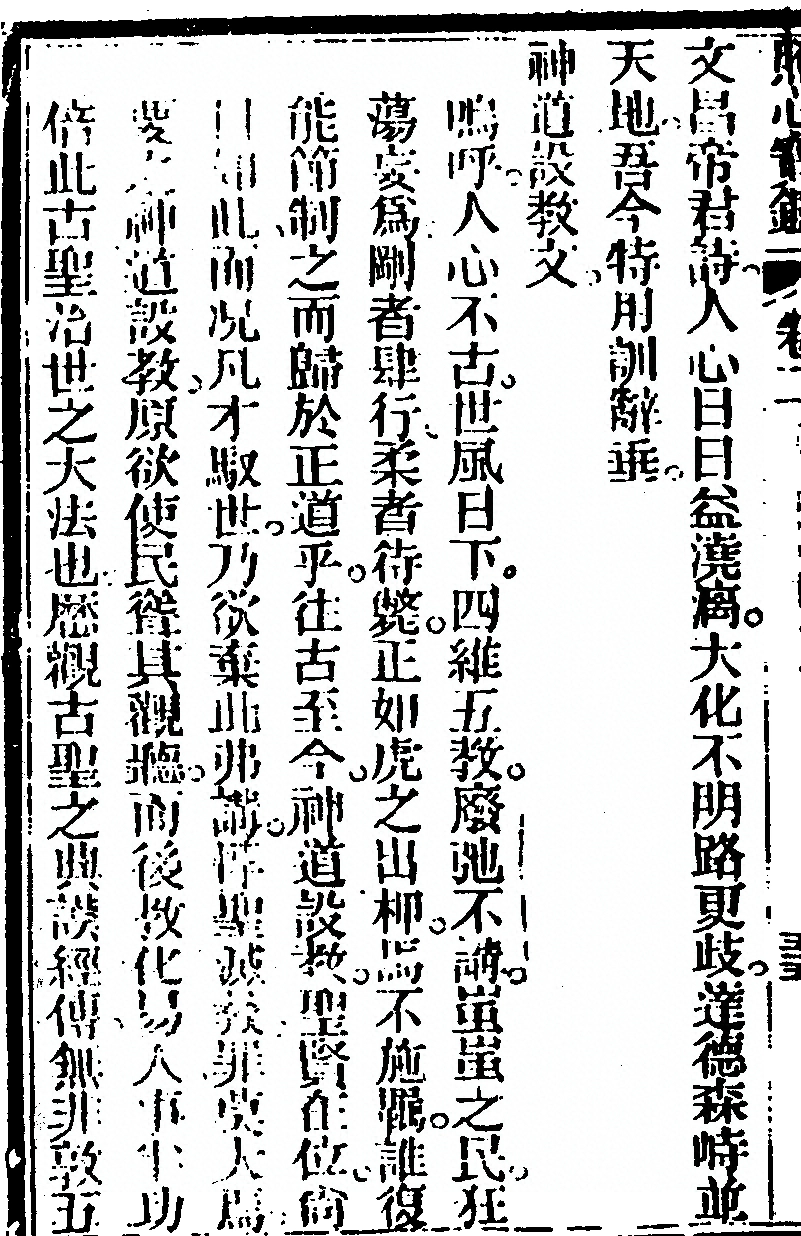 照心寶鑑 卷一
文昌帝君詩人心日日益澆漓大化不明路更歧達德森峙並
天地吾今特用訓辭垂
神道設教文
嗚呼人心不古世風日下四維五教廢弛不講蚩蚩之民狂
蕩妄爲剛者肆行柔者待斃正如虎之出柙焉不施羈誰復
能節制之而歸於正道乎往古至今神道設教聖賢在位尚
且如此而况凡才馭世乃欲棄此弗講侮聖滅矣罪莫大焉
神道設教原欲使民聳其觀聽而後教化易人事半功
倍此古聖治世之大法也歷觀古聖之典謨經傳無非敦五